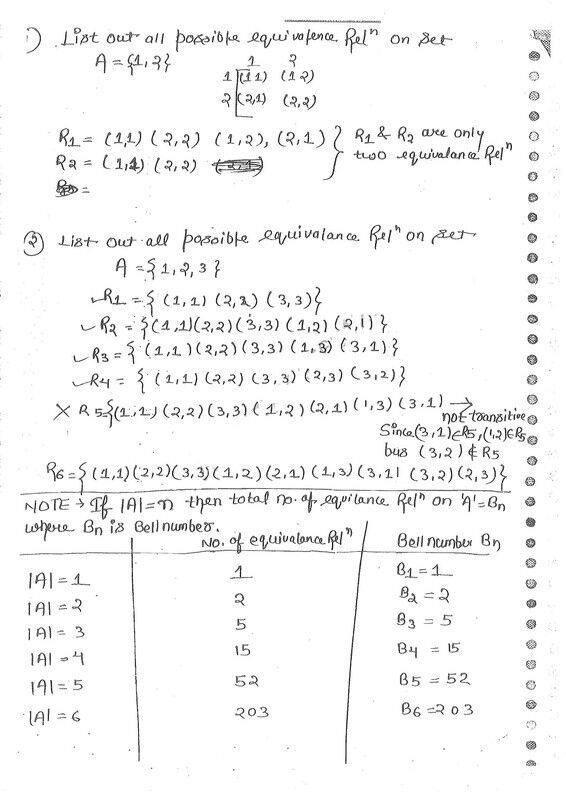 1) List out all possible equivalence Relⁿ on set
A = {1,2}
1 2
1 (1 1) (1 2)
2 (2,1) (2,2)
R1 = (1,1) (2,2) (1,2), (2,1) } R1 & R2 are only
R2 = (1,1) (2,2) two equivalance Relⁿ
=
2) List out all possible equivalance Relⁿ on set
A = {1,2,3}
✓R1 = { (1,1) (2,2) (3,3)}
✓R2 = {(1,1)(2,2)(3,3) (1,2) (2,1)}
✓R3 = { (1,1)(2,2)(3,3) (1,3) (3,1)}
✓R4 = { (1,1) (2,2) (3,3) (2,3) (3,2)}
X R5{(1,1) (2,2)(3,3)(1,2) (2,1) (1,3) (3,1) →
not transitive
Since(3,1)∈R5,(1,2)∈R5
bus (3,2) ∉ R5
R6={(1,1)(2,2)(3,3)(1,2)(2,1)(1,3)(3,1) (3,2)(2,3)}
NOTE → If |A|=n then total no. of equilance Relⁿ on 'A'=Bn
where Bn is Bell number.
No. of equivalance Relⁿ Bell number Bn
|A| = 1 1 B1 = 1
|A| = 2 2 B2 = 2
|A| = 3 5 B3 = 5
|A| = 4 15 B4 = 15
|A| = 5 52 B5 = 52
|A| = 6 203 B6 = 203